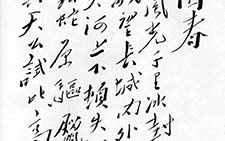 春
風光千里冰封
望長城内外
大河上下頓失
蛇原驅臘
天公試比高